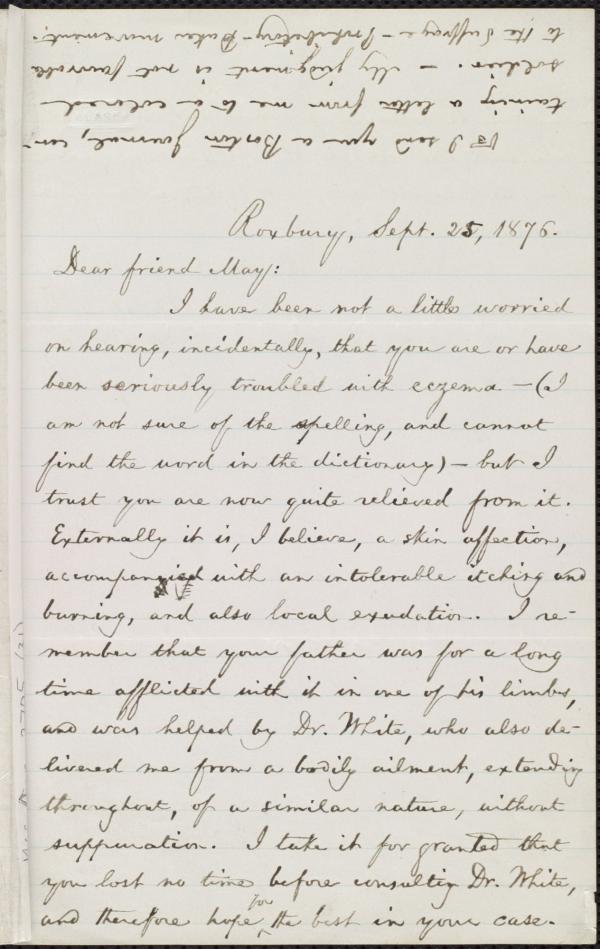 P.S. I send you a Boston Journal, con-
taining a letter from me to a colored
soldier. — My judgment is not favorable
to the Suffrage-Prohibitory-Baker movement.
Roxbury, Sept. 25, 1876.
Dear friend May:
I have been not a little worried
on hearing, incidentally, that you are or have
been seriously troubled with eczema — (I
am not sure of the spelling, and cannot
find the word in the dictionary) — but I
trust you are now quite relieved from it.
Externally it is, I believe, a skin affection,
accompanied with an intolerable itching and
burning, and also local exudation. I re-
member that your father was for a long
time afflicted with it in one of his limbs,
and was helped by Dr. White, who also de-
livered me from a bodily ailment, extending
throughout, of a similar nature, without
suppuration. I take it for granted that
you lost no time before consulting Dr. White,
and therefore hope for the best in your case.